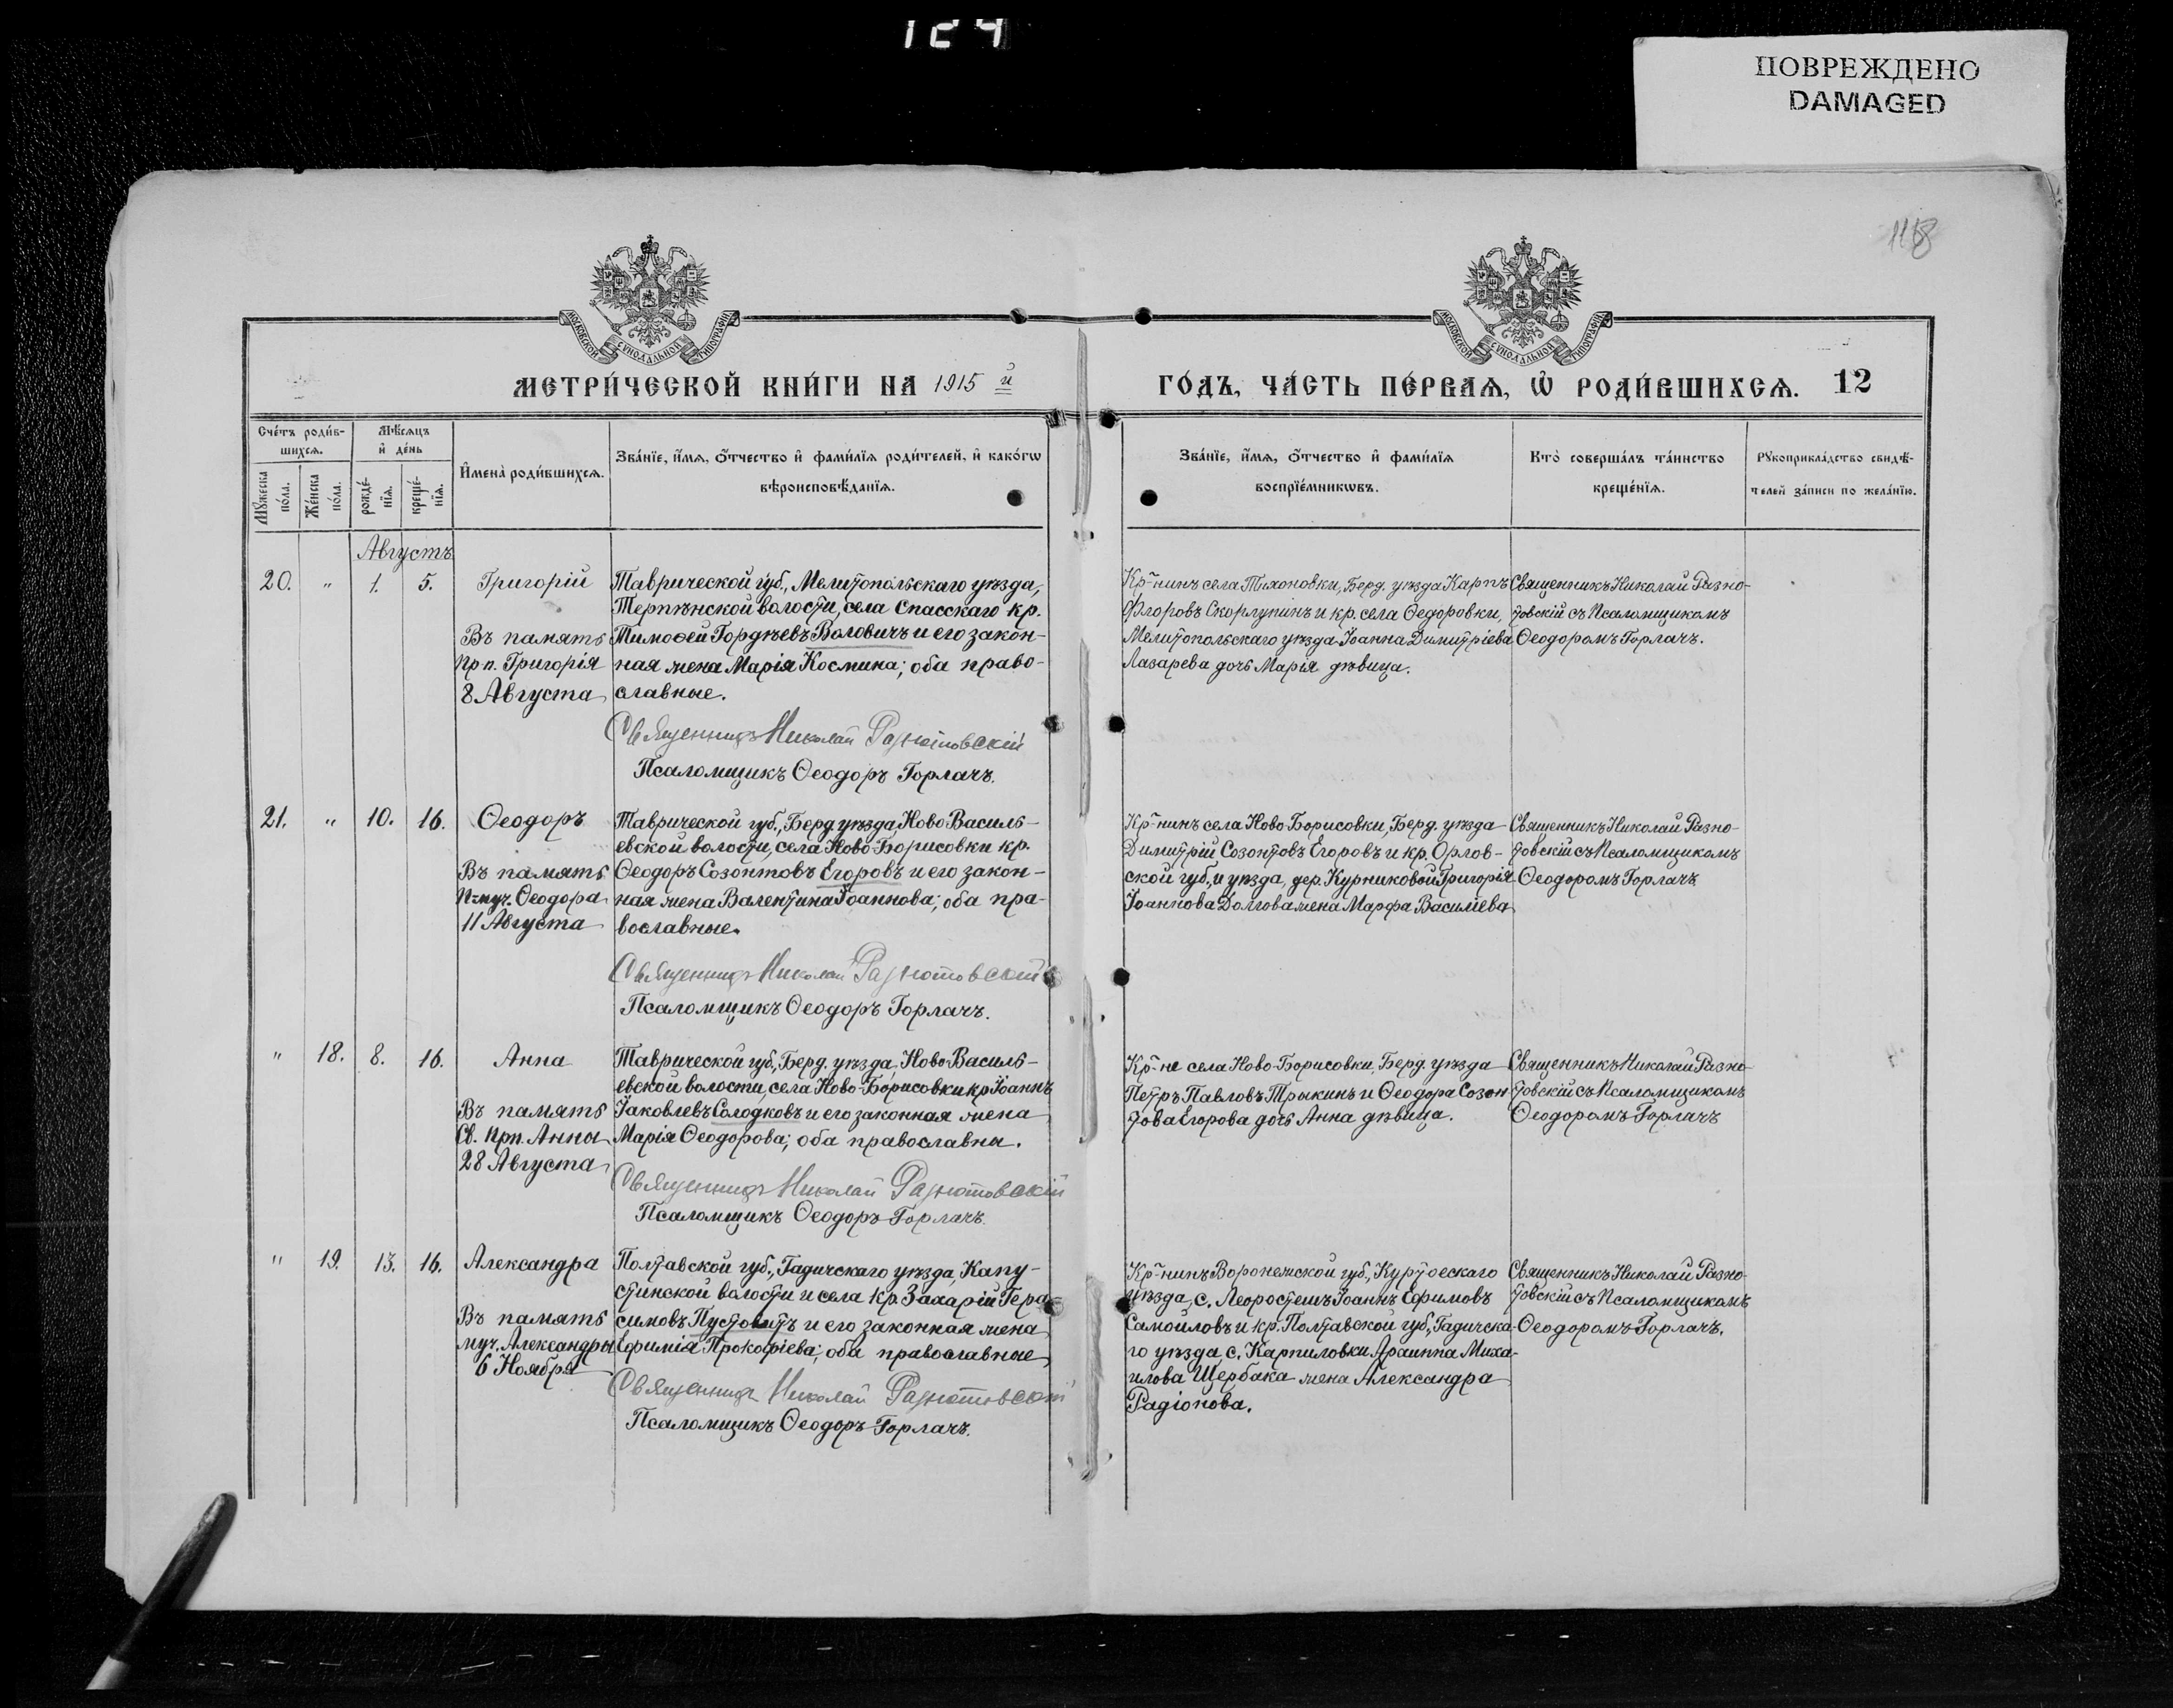 124
ПОВРЕЖДЕНО
DAMAGED
118
МОСКОВСКОЙ СУНОДАЛЬНОЙ ТИПОГРАФІИ
МОСКОВСКОЙ СУНОДАЛЬНОЙ ТИПОГРАФІИ
МЕТРИ́ЧЕСКОЙ КНИ́ГИ НА 1915 й
ГО́ДЪ, ЧА́СТЬ ПЕ́РВАѦ, Ѿ РОДИ́ВШИХСѦ. 12
Сче́тъ роди́в-
шихсѧ.
Мꙋ́жеска
по́ла.
Же́нска
по́ла.
Мѣ́сѧцъ
и҆ де́нь
рожде́-
нїѧ.
креще́-
нїѧ.
И҆мена̀ роди́вшихсѧ.
Зва́нїе, и҆́мѧ, ѻ҆́тчество и҆ фами́лїѧ роди́телей, и҆ како́гѡ
вѣроисповѣ́данїѧ.
Зва́нїе, и҆́мѧ, ѻ҆́тчество и҆ фами́лїѧ
воспрїе́мникѡвъ.
Кто̀ соверша́лъ та́инство
креще́нїѧ.
Рꙋкоприкла́дство свидѣ́-
телей за́писи по жела́нїю.
Августъ
20. " 1. 5. Григорій
Въ память
Прп. Григорія
8 Августа
Таврической губ., Мелитопольскаго уѣзда,
Терпѣнской волости, села Спасскаго кр.
Тимоѳей Гордѣевъ Воловичъ и его закон-
ная жена Марія Космина; оба право-
славные.
Священникъ Николай Разнотовскій
Псаломщикъ Ѳеодоръ Горлачъ.
Кр-нинъ села Тихоновки, Берд. уѣзда Карпъ
Флоровъ Скорлупинъ и кр. села Ѳедоровки,
Мелитопольскаго уѣзда Іоанна Димитріева
Лазарева дочь Марія дѣвица.
Священникъ Николай Разно-
товскій съ Псаломщикомъ
Ѳеодоромъ Горлачъ.
21. " 10. 16. Ѳеодоръ
Въ память
П-муч. Ѳеодора
11 Августа
Таврической губ., Берд. уѣзда, Ново-Василь-
евской волости, села Ново-Борисовки кр.
Ѳеодоръ Созонтовъ Егоровъ и его закон-
ная жена Валентина Іоаннова; оба пра-
вославные.
Священникъ Николай Разнотовскій
Псаломщикъ Ѳеодоръ Горлачъ.
Кр-нинъ села Ново-Борисовки, Берд. уѣзда
Димитрій Созонтовъ Егоровъ и кр. Орлов-
ской губ., и уѣзда, дер. Курниковой Григорія
Іоаннова Долгова жена Марфа Васильева
Священникъ Николай Разно-
товскій съ Псаломщикомъ
Ѳеодоромъ Горлачъ
" 18. 8. 16. Анна
Въ память
Св. Прп. Анны
28 Августа
Таврической губ., Берд. уѣзда, Ново-Василь-
евской волости, села Ново-Борисовки кр Іоаннъ
Іаковлевъ Солодковъ и его законная жена
Марія Ѳеодорова; оба православны.
Священникъ Николай Разнотовскій
Псаломщикъ Ѳеодоръ Горлачъ.
Кр-не села Ново-Борисовки, Берд. уѣзда
Петръ Павловъ Трыкинъ и Ѳеодора Созон
това Егорова дочь Анна дѣвица.
Священникъ Николай Разно-
товскій съ Псаломщикомъ
Ѳеодоромъ Горлачъ
" 19. 13. 16. Александра
Въ память
муч. Александры
6 Ноября
Полтавской губ., Гадичскаго уѣзда, Капу-
стинской волости и села кр. Захарій Гера-
симовъ Пустовитъ и его законная жена
Ефимія Прокофіева; оба православные
Священникъ Николай Разнотовскій
Псаломщикъ Ѳеодоръ Горлачъ.
Кр-нинъ Воронежской губ.,
уѣзда, с. Іоаннъ Ефимовъ
Самойловъ и кр. Полтавской губ., Гадичска-
го уѣзда с. Карпиловки Миха-
илова Щербака жена Александра
Радіонова.
Священникъ Николай Разно-
товскій съ Псаломщикомъ
Ѳеодоромъ Горлачъ.